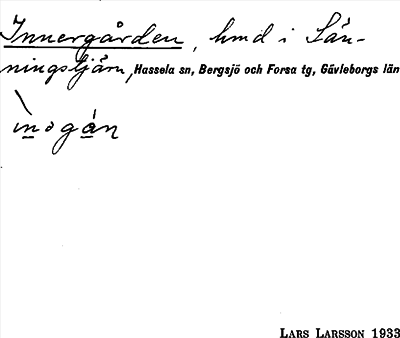 Innergården, hmd i Län-
ningstjärn, Hassela sn, Bergsjö och Forsa tg, Gävleborgs län
LARS LARSSON 1933